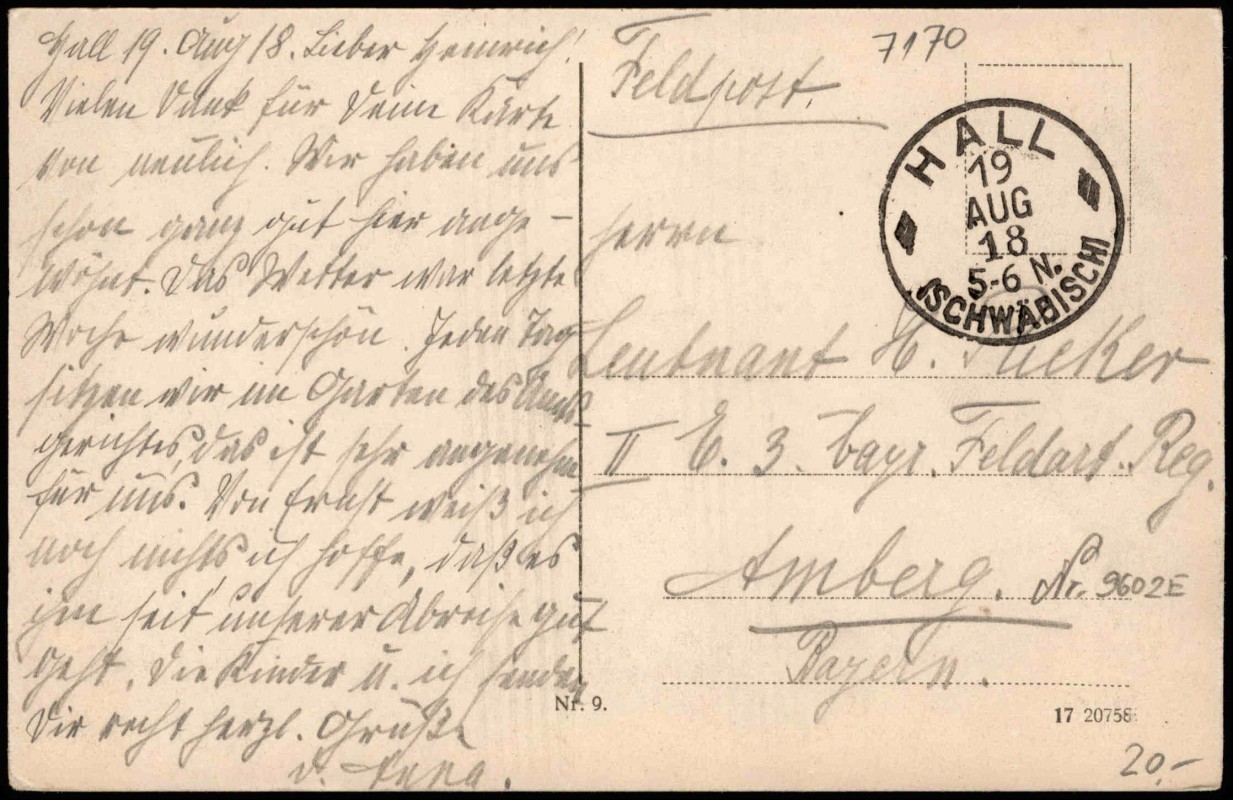 Hall 19. Aug 18. Lieber Heinrich!
Vielen Dank für Deine Karte
von neulich. Wir haben uns
schon ganz gut hier ange-
wöhnt. Das Wetter war letzte
Woche wunderschön. Jeden Tag
sitzen wir im Garten des Amts-
gerichtes, das ist sehr angenehm
für uns. Von Ernst weiß ich
noch nichts ich hoffe, daß es
ihm seit unserer Abreise gut
geht. Die Kinder u. ich senden
Dir recht herzl. Grüße
D. Anna.
Feldpost.
7170
HALL
19
AUG
18
5-6 N.
(SCHWÄBISCH)
Herrn
Leutnant H.
II E. 3. bayr. Feldart. Reg.
Amberg. Nr. 9602E
Bayern.
Nr. 9.
17 20758
20.-